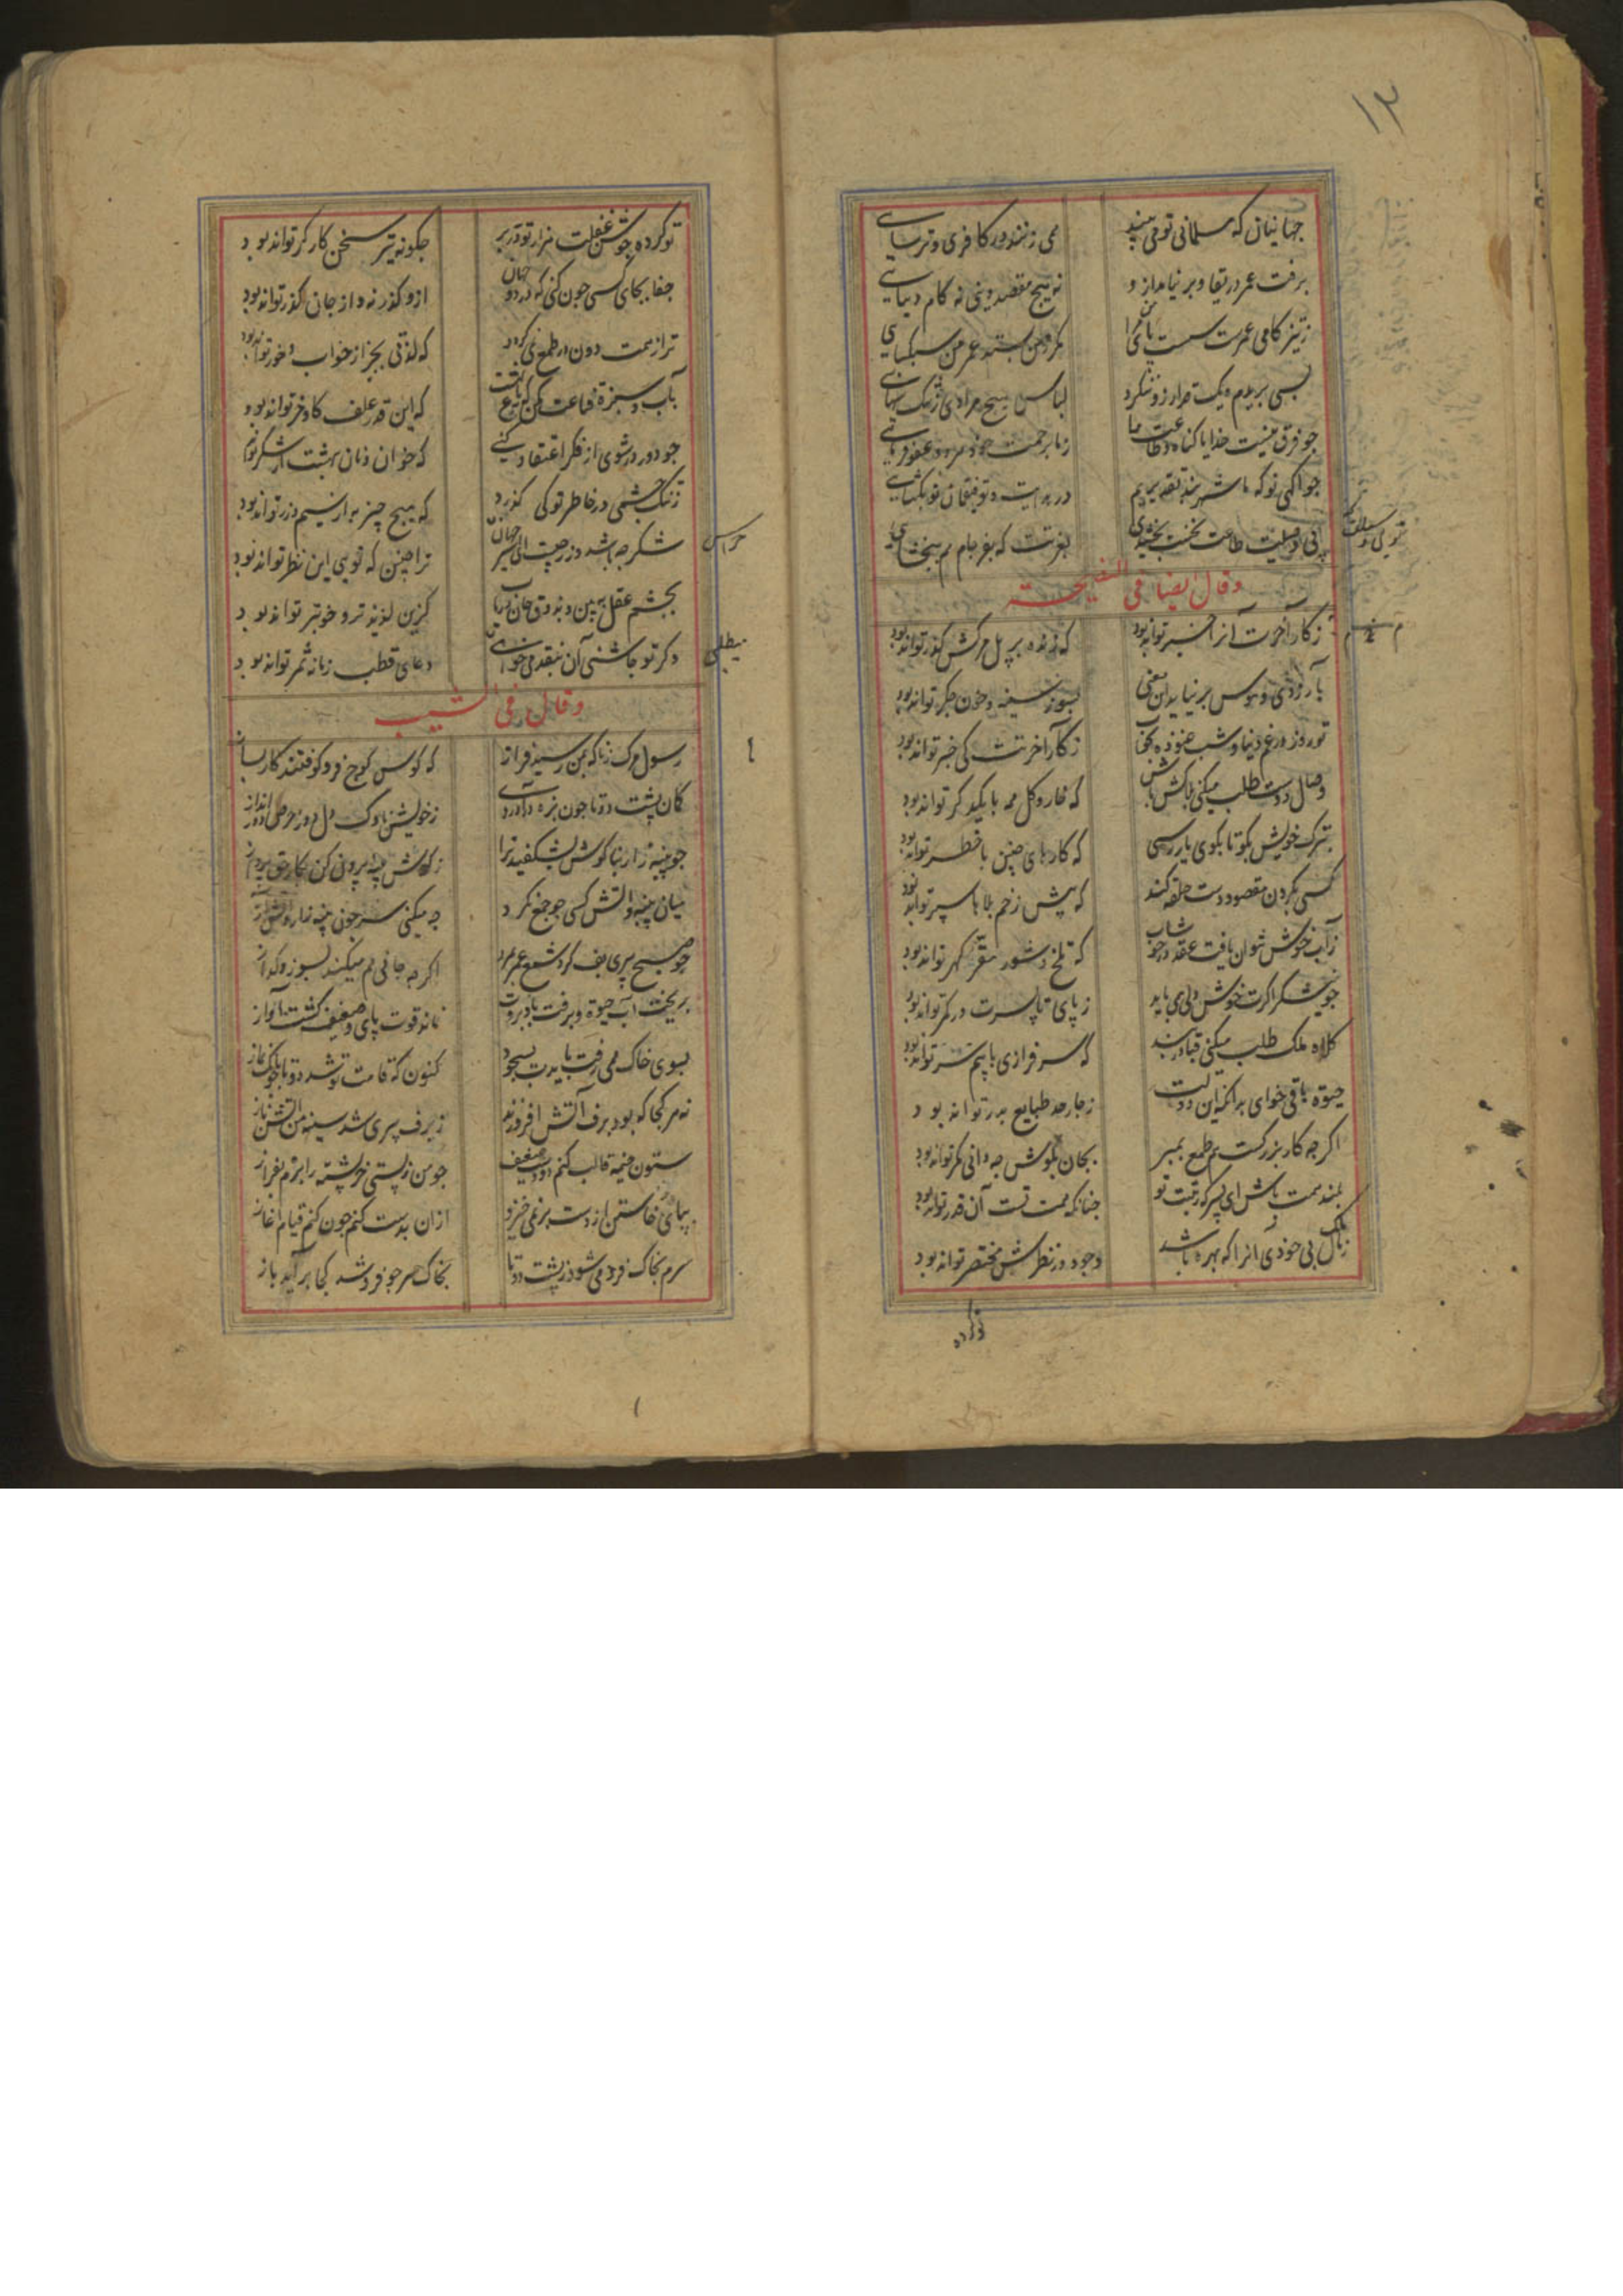 ۱۳
جهانیان که مسلمانی تو می بینند می زنند در کافری و ترسایی
برفت عمر دریغا و بر نیامد ازو نه هیچ مقصد دینی نه کام دنیایی
ز تیز کامی عمرت سست پای
بسی بریدم و یک مراد ازو نکرد لباس هیچ مرادی
چو فرق نیست خدایا گناه و طاعت ما ز ما برحمت خود
چو آگهی تو که ما
بعزتت که بغرجام هم ببخشایی
وقال ایضا فی النصیحة
ز کار آخرت آنرا خبر تواند بود که زنده بر پل مرگش گذر تواند بود
بآرزوی و هوس بر نیاید این معنی بسوز سینه و خون جگر تواند بود
تو روز در غم دنیا و شب غنوده بخواب ز کار آخرتت کی خبر تواند بود
وصال دوست طلب میکنی بلاکش باش که خار و گل همه با یکدگر تواند بود
بترک خویش بگو تا بکوی یار رسی که کارهای چنین با خطر تواند بود
کسی بگردن مقصود دست حلقه کند که پیش زخم بلاها سپر تواند بود
ز آب خوش نتوان یافت عقد در خوشاب که تلخ و شور مقر گهر تواند بود
چو نیشکر اگرت خوش دلی می باید ز پای تا بسرت در کمر تواند بود
کلاه ملک طلب میکنی قبا در بند که سرفرازی با بیم سر تواند بود
حیوة باقی خواهی بدانکه این دولت ز چار حد طبایع بدر تواند بود
اگر چه کار بزرگست هم طمع مبر بجان بکوش چه دانی مگر تواند بود
بلند همت باش ای پسر که رتبت تو چنانکه همت تست آن قدر تواند بود
ز ملک بی خودی آنرا که بهره باشد وجود در نظرش مختصر تواند بود
تو کرده
تو کرده جوشن غفلت هزار تو در بر چگونه تیر سخن کارگر تواند بود
جفا بجای کسی چون کنی که در دو جهان ازو گذر نه و از جان گذر تواند بود
ترا ز همت دون در طمع نمی گردد که لذتی بجز از خواب و خور تواند بود
بآب و سبزه قناعت مکن ز باغ بهشت که این قدر علف گاو و خر تواند بود
ز تنگ چشمی در خاطر تو کی گذرد که هیچ چیز به از سیم و زر تواند بود
ترا چنین که تویی این نظر تواند بود
بچشم عقل ببین و بذوق جان دریاب کزین لذیذتر و خوبتر تواند بود
وگر تو چاشنی آن بنقد می خواهی دعای قطب زمانه ثمر تواند بود
وقال فی الشیب
رسول مرگ ز ناگه بمن رسید فراز که کوس کوچ فرو کوفتند کار بساز
کمان پشت دوتا چون بزه درآوردی ز خویش ناوک دل دوز حرص دور انداز
چو پنبه زار بناگوش بشکفید ترا
میان پنبه و آتش کسی چو جمع نکرد چه میکنی سر چون پنبه زار
چو صبح پیری پف کرد شمع عمر مرد اگر چه جانی هم میکند بسوز و گداز
بریخت آب حیوة و برفت باد بروت نماند قوت پای و ضعیف گشت آواز
بسوی خاک همی رفت بایدت بسجود کنون که قامت تو شد دوتا چو بانگ نماز
نه هر کجا که بود برف آتش افروزند ز برف پیری شد سینه من آتش
ستون خیمه قالب کنم دو دست ضعیف چو من ز پستی خر پشته را برم بفراز
بپای خاستن از دست بر نمی خیزد ازان بدست کنم چون کنم قیام آغاز
سرم بخاک فرو می شود ز پشت دوتا بخاک هر چو فرو شد کجا بر آید باز